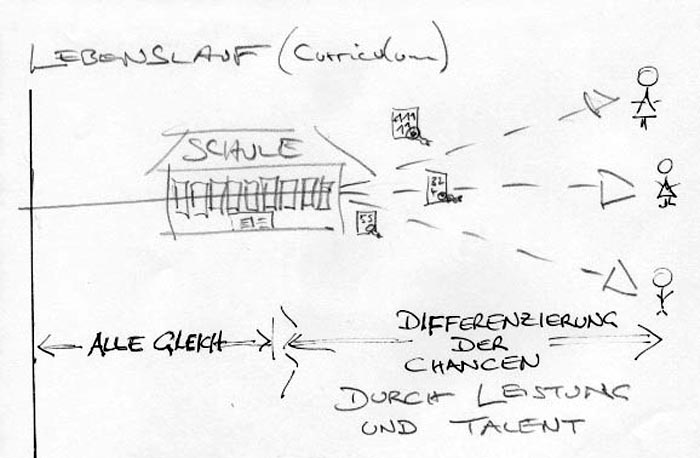 LEBENSLAUF (Curriculum)
SCHULE
111
11
32
55
ALLE GLEICH
DIFFERENZIERUNG
DER
CHANCEN
DURCH LEISTUNG
UND TALENT